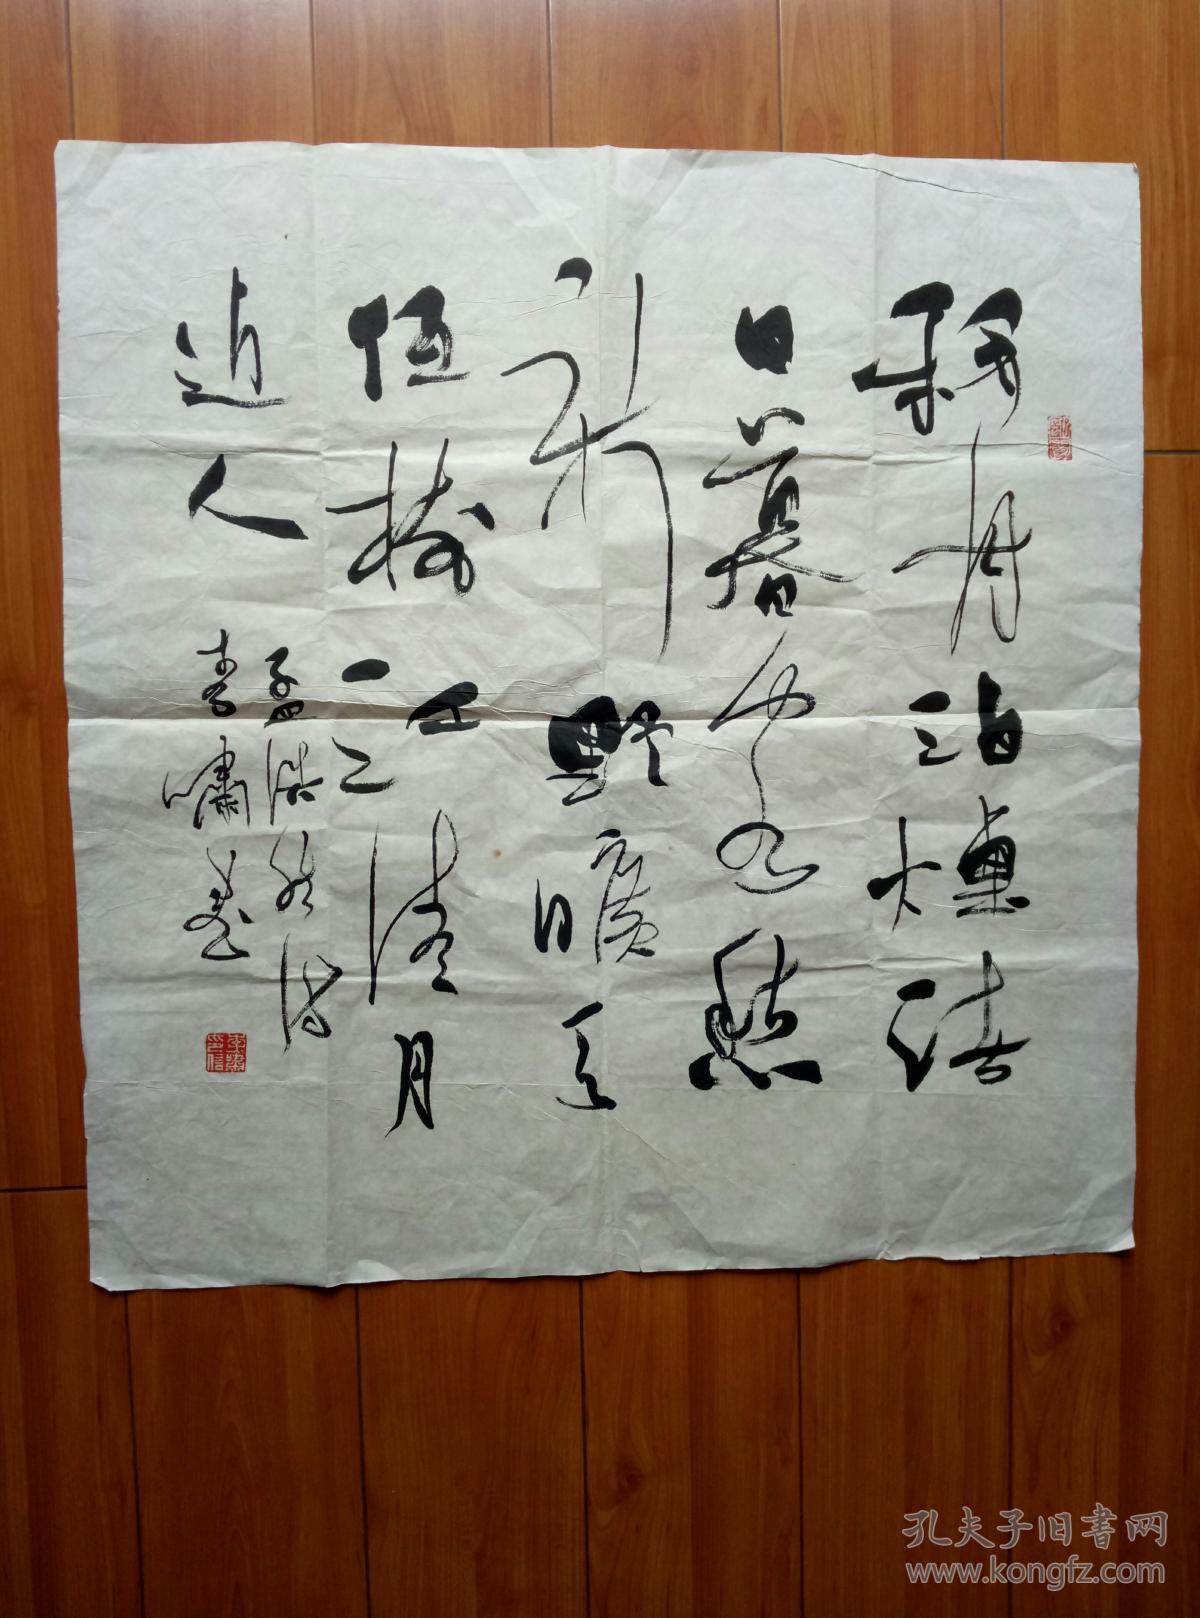 移舟泊煙渚
日暮客愁
新野曠天
低樹江清月
近人
孟浩然诗
孔夫子旧書网
www.kongfz.com